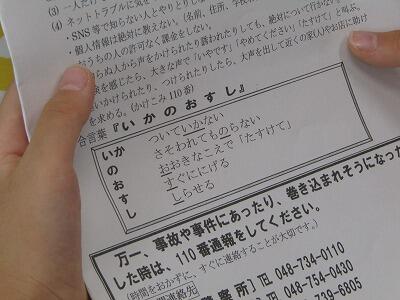 (3) 一人だけで
(4) ネットトラブルに気を
・SNS等で知らない人とやりとりしな
・個人情報は絶対に教えない。(名前、住所、学校
・おうちの人の許可なく課金をしない。
らぬ人から声をかけられたり誘われたりしても、絶対について行かない。
険を感じたら、大きな声で「いやです」「やめてください」「たすけて」と叫ぶ。
いかけられたり、つけられたりしたら、大声を出して近くの家(人)やお店に助け
を求める。(かけこみ110番)
合言葉『いかのおすし』
いか ついていかない
の さそわれてものらない
お おおきなこえで「たすけて」
す すぐににげる
し しらせる
万一、事故や事件にあったり、巻き込まれそうになった
した時は、110番通報をしてください。
(時間をおかずに、すぐに連絡することが大切です。)
関連絡先
警察所】℡ 048-734-0110
℡ 048-754-0430
39-6805